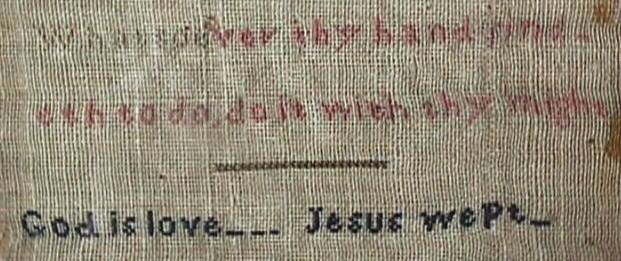 Whatsoever thy hand find-
eth to do, do it with thy might
God is love--- Jesus wept-